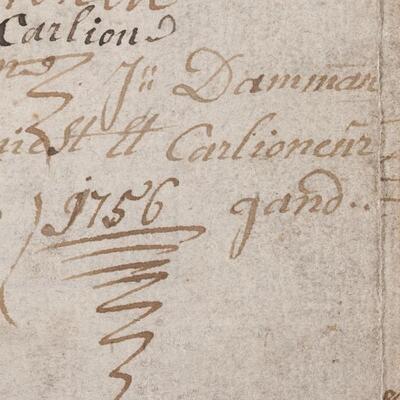 Carlion
Jn Damman
nist et Carlioneur
1756 gand..